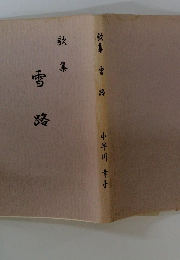 歌集
雪路
歌集 雪路 小早川幸子